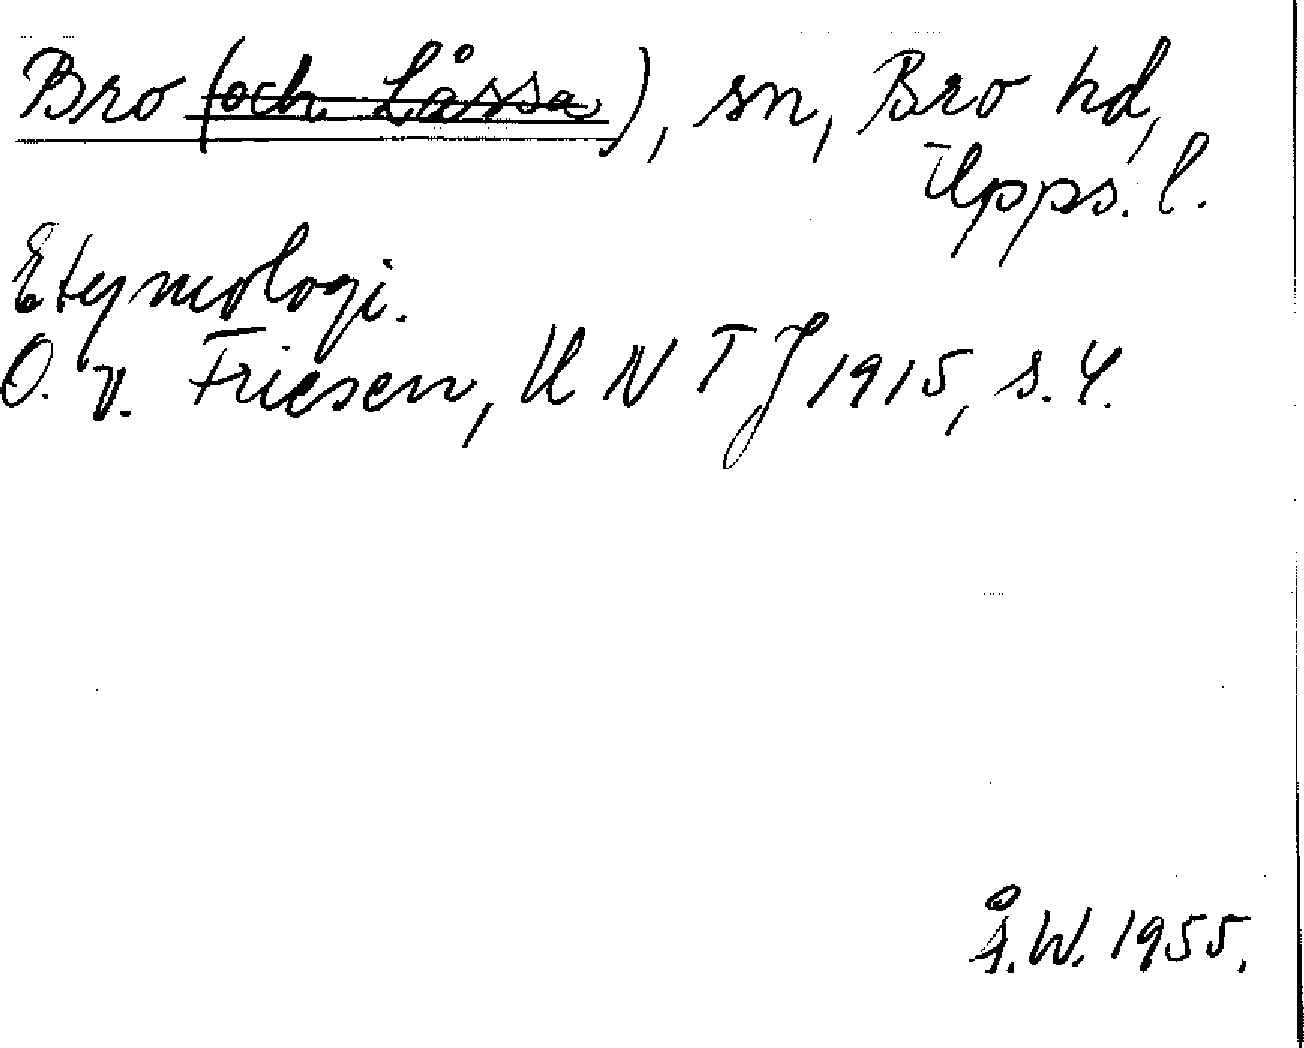 Bro (och Låssa), sn, Bro hd,
Upps. l.
Etymologi.
O. v. Friesen, UNTJ 1915, s. 4.
Å.W. 1955.